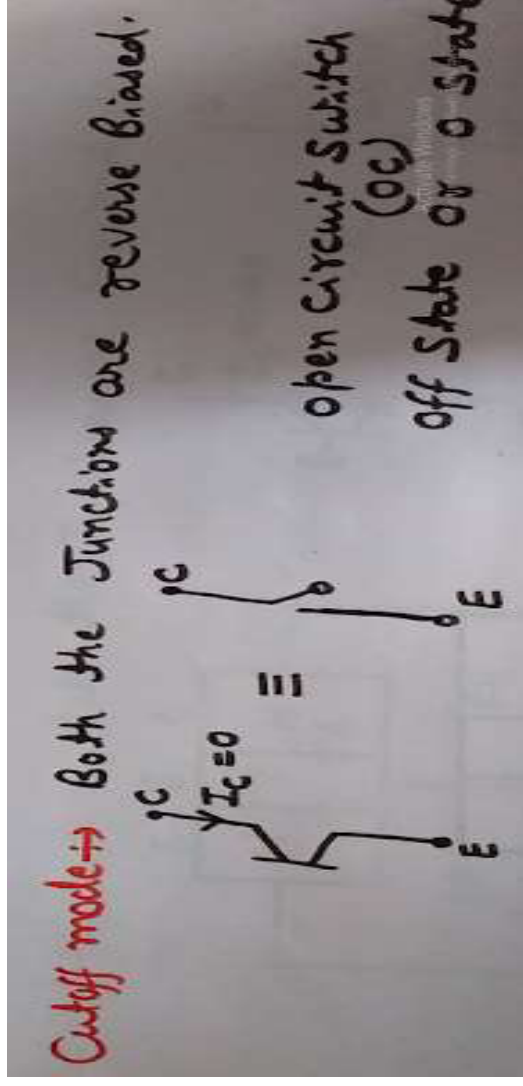 Cutoff mode:→ Both the Junctions are reverse Biased.
C
C
Ic=0
≡
E
E
open Circuit Switch
(OC)
off State Or 0 State